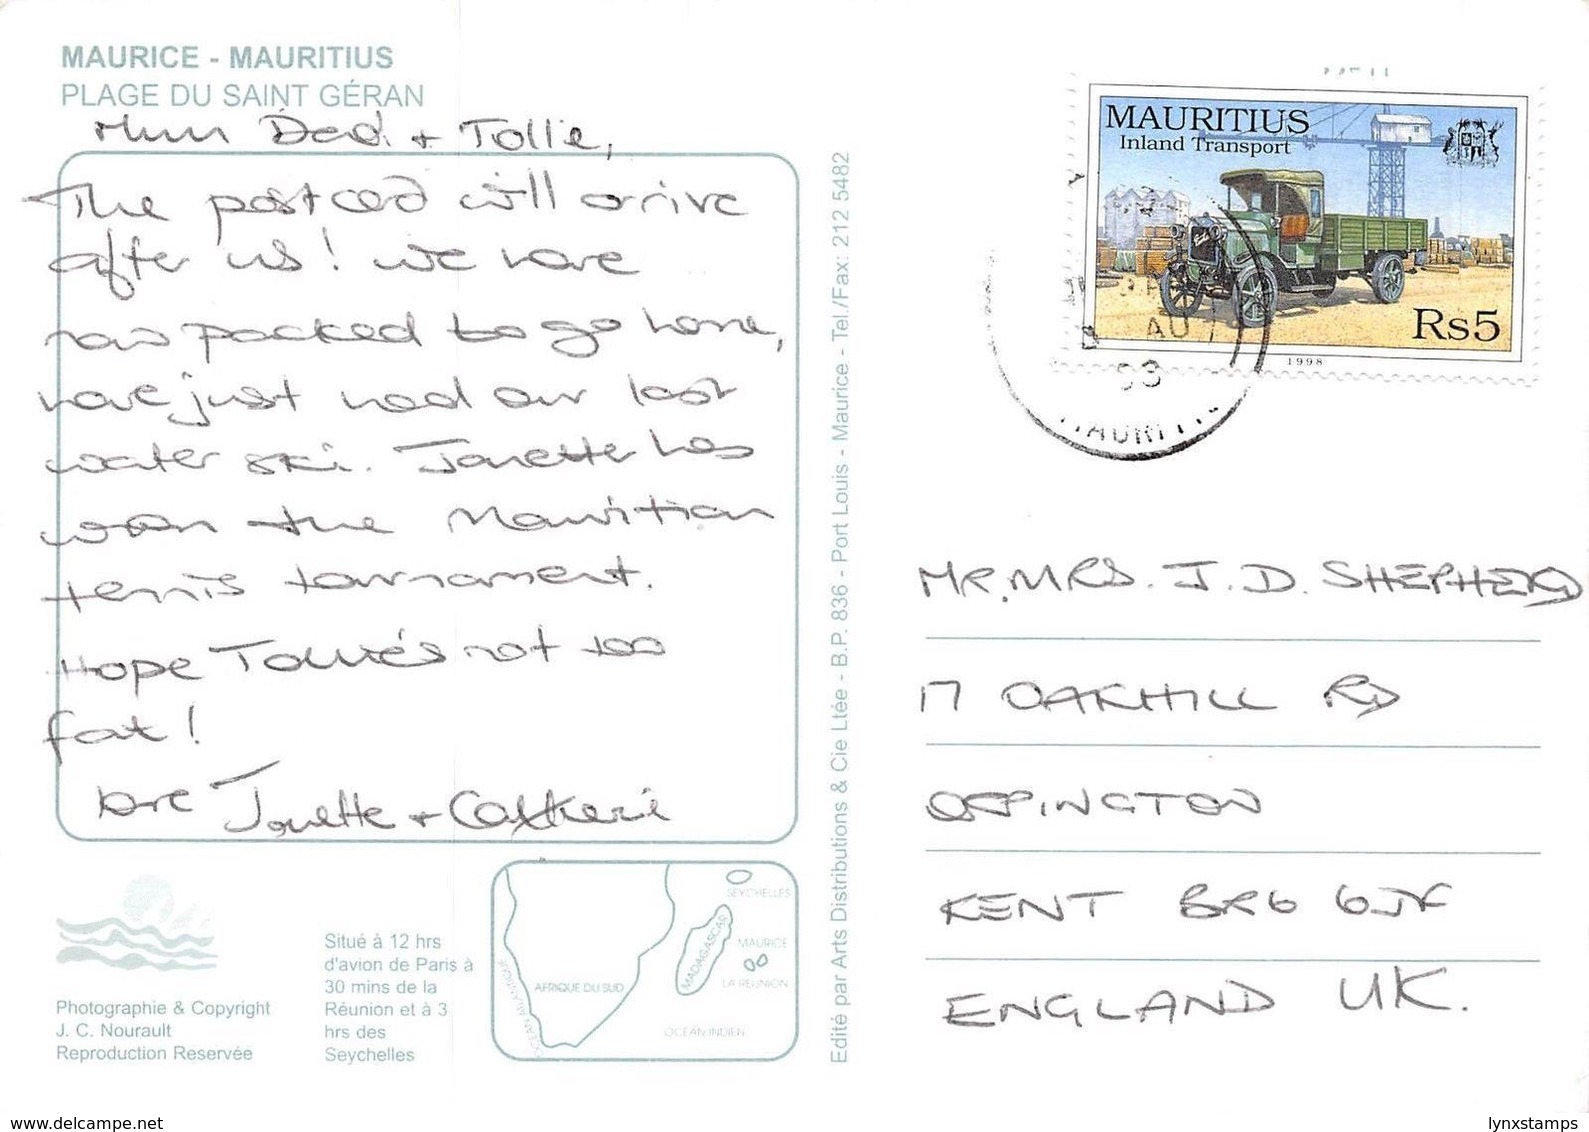 MAURICE - MAURITIUS
PLAGE DU SAINT GÉRAN
Mum Dad + Tollie,
The postcard will arrive
after us! we have
now packed to go home,
have just had our last
water ski. Janette has
won the Mauritian
tennis tournament.
Hope Tollie's not too
fat!
love Janette + Catherine
Photographie & Copyright
J. C. Nourault
Reproduction Reservée
Situé à 12 hrs
d'avion de Paris à
30 mins de la
Réunion et à 3
hrs des
Seychelles
SEYCHELLES
MADAGASCAR
MAURICE
LA REUNION
AFRIQUE DU SUD
OCEAN ATLANTIQUE
OCEAN INDIEN
Edité par Arts Distributions & Cie Ltée - B.P. 836 - Port Louis - Maurice - Tel./Fax: 212 5482
MAURITIUS
Inland Transport
Rs5
1998
AU
MR. MRS. J. D. SHEPHERD
17 OAKHILL RD
ORPINGTON
KENT BR6
ENGLAND UK.
www.delcampe.net
lynxstamps